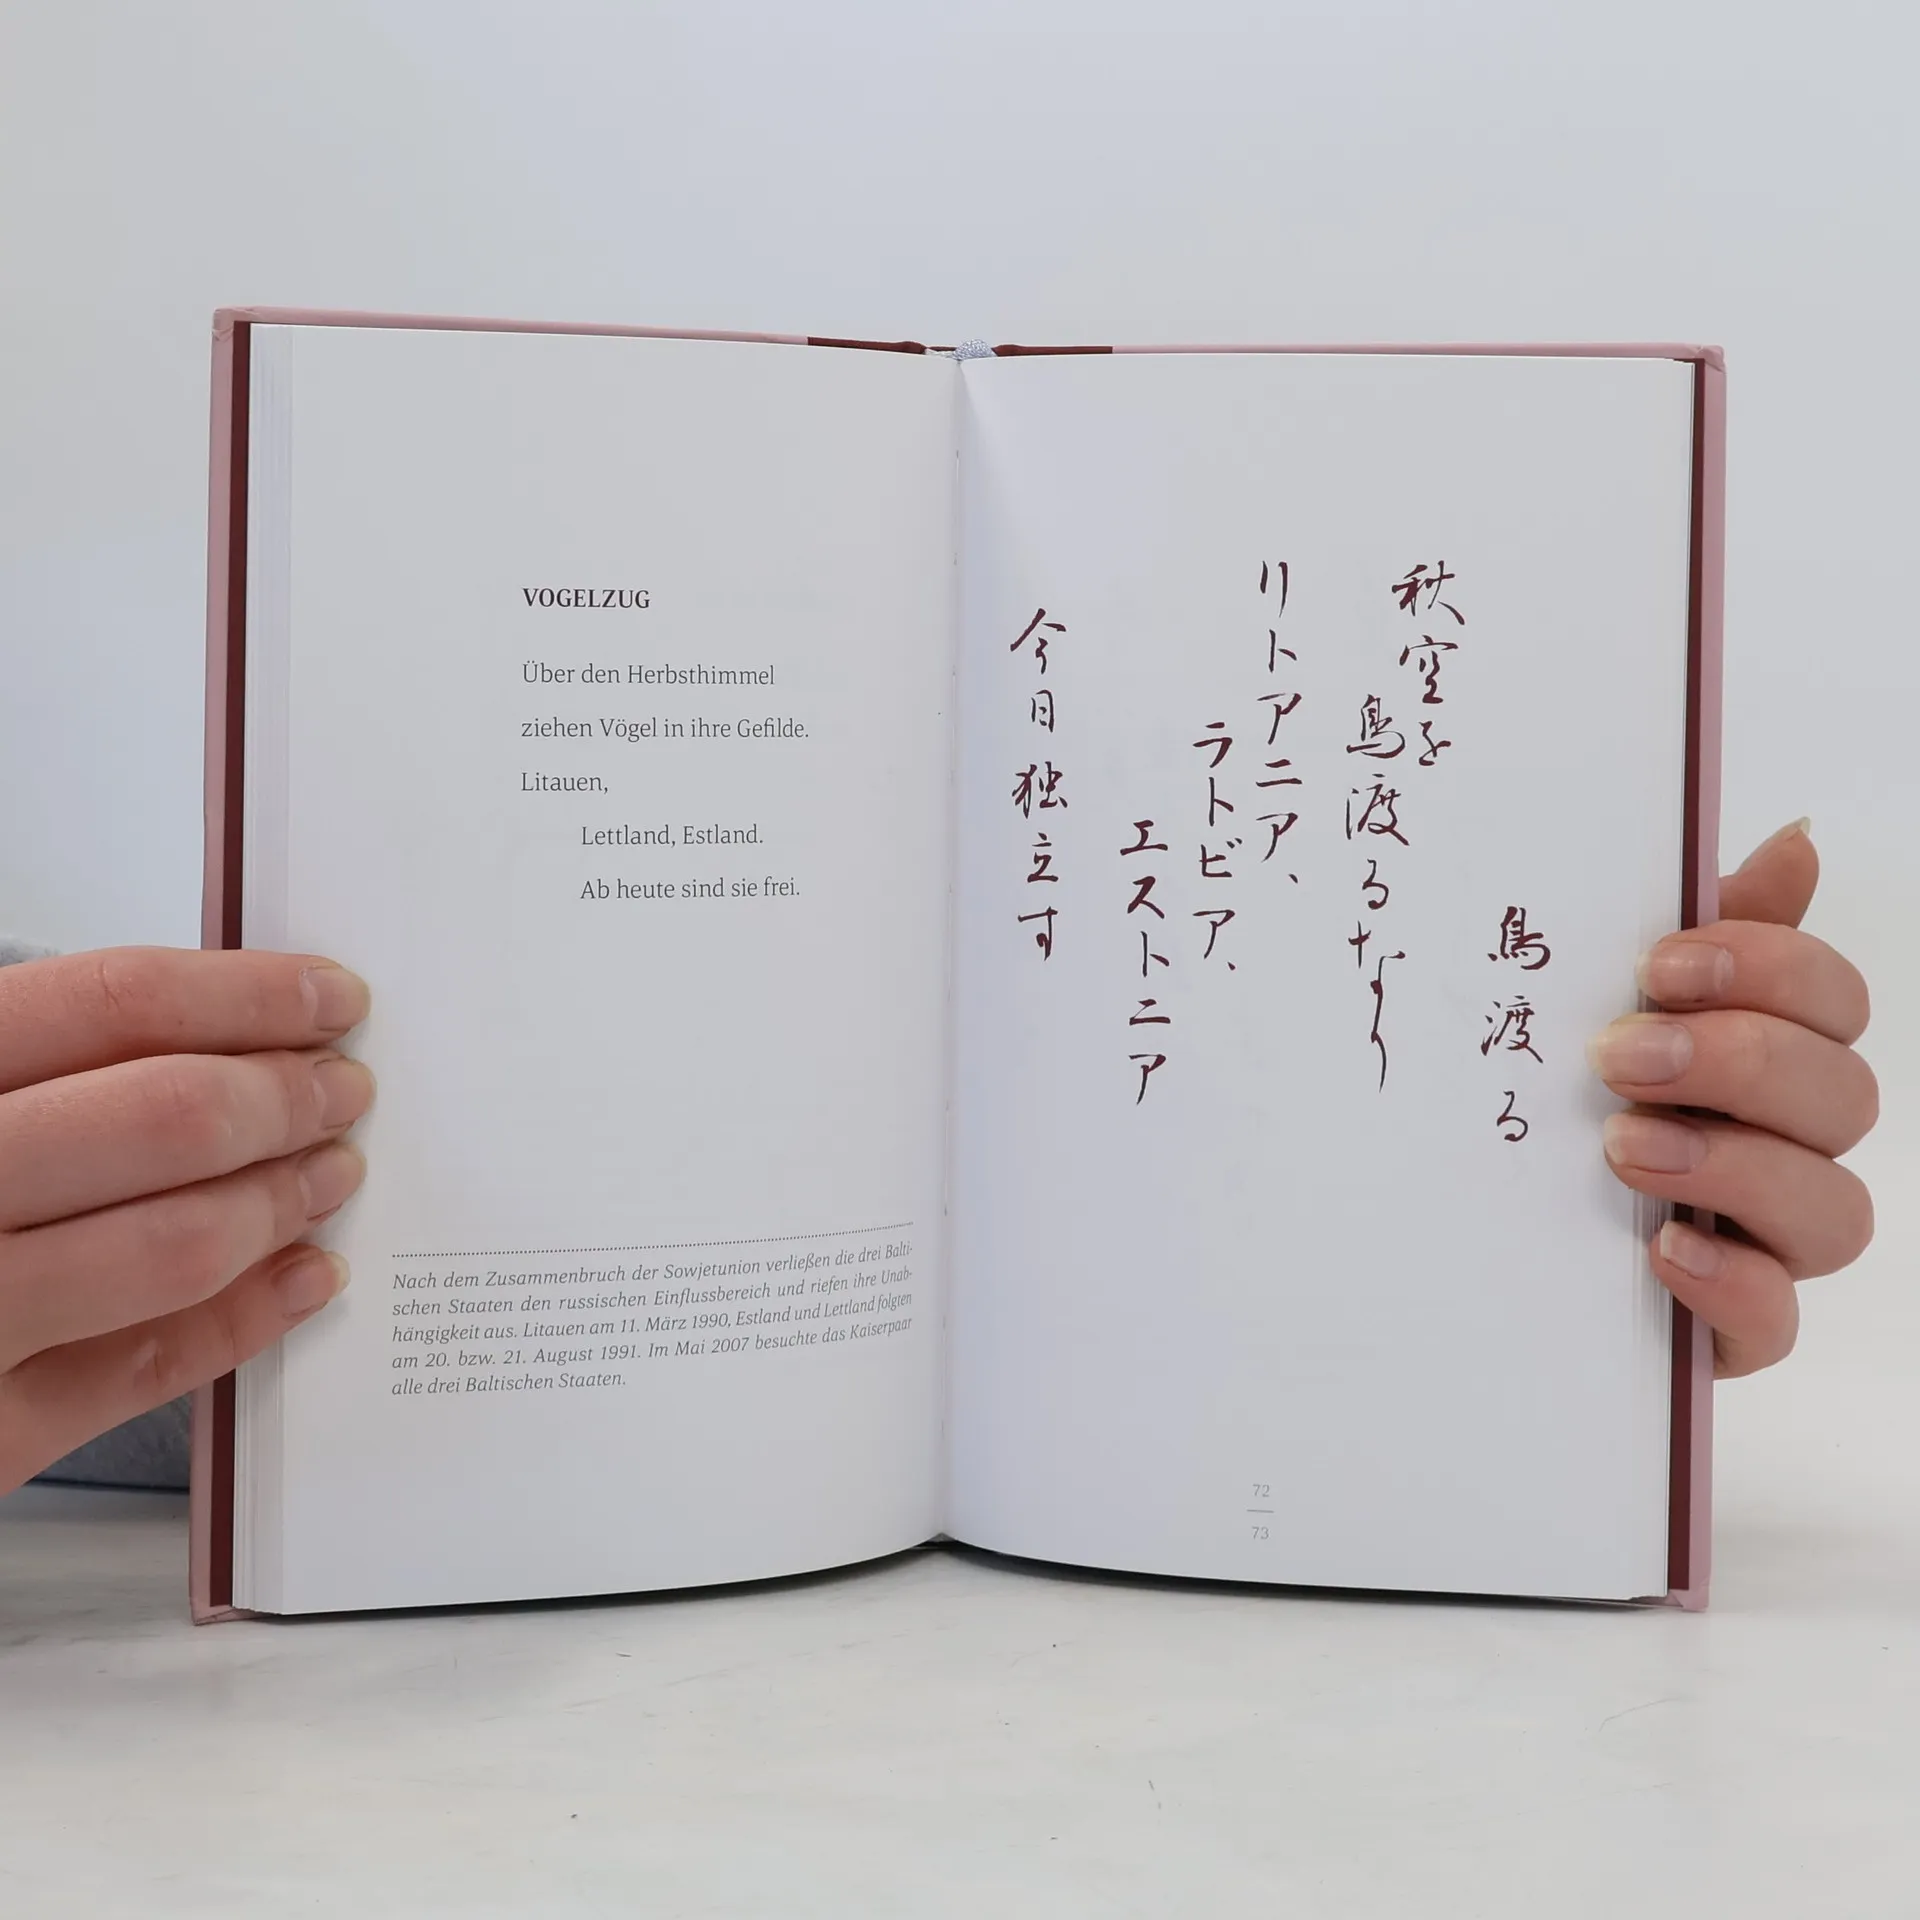 VOGELZUG
Über den Herbsthimmel
ziehen Vögel in ihre Gefilde.
Litauen,
Lettland, Estland.
Ab heute sind sie frei.
Nach dem Zusammenbruch der Sowjetunion verließen die drei Balti-
schen Staaten den russischen Einflussbereich und riefen ihre Unab-
hängigkeit aus. Litauen am 11. März 1990, Estland und Lettland folgten
am 20. bzw. 21. August 1991. Im Mai 2007 besuchte das Kaiserpaar
alle drei Baltischen Staaten.
鳥渡る
秋空を
鳥渡るなり
リトアニア、
ラトビア、
エストニア
今日独立す
72
73